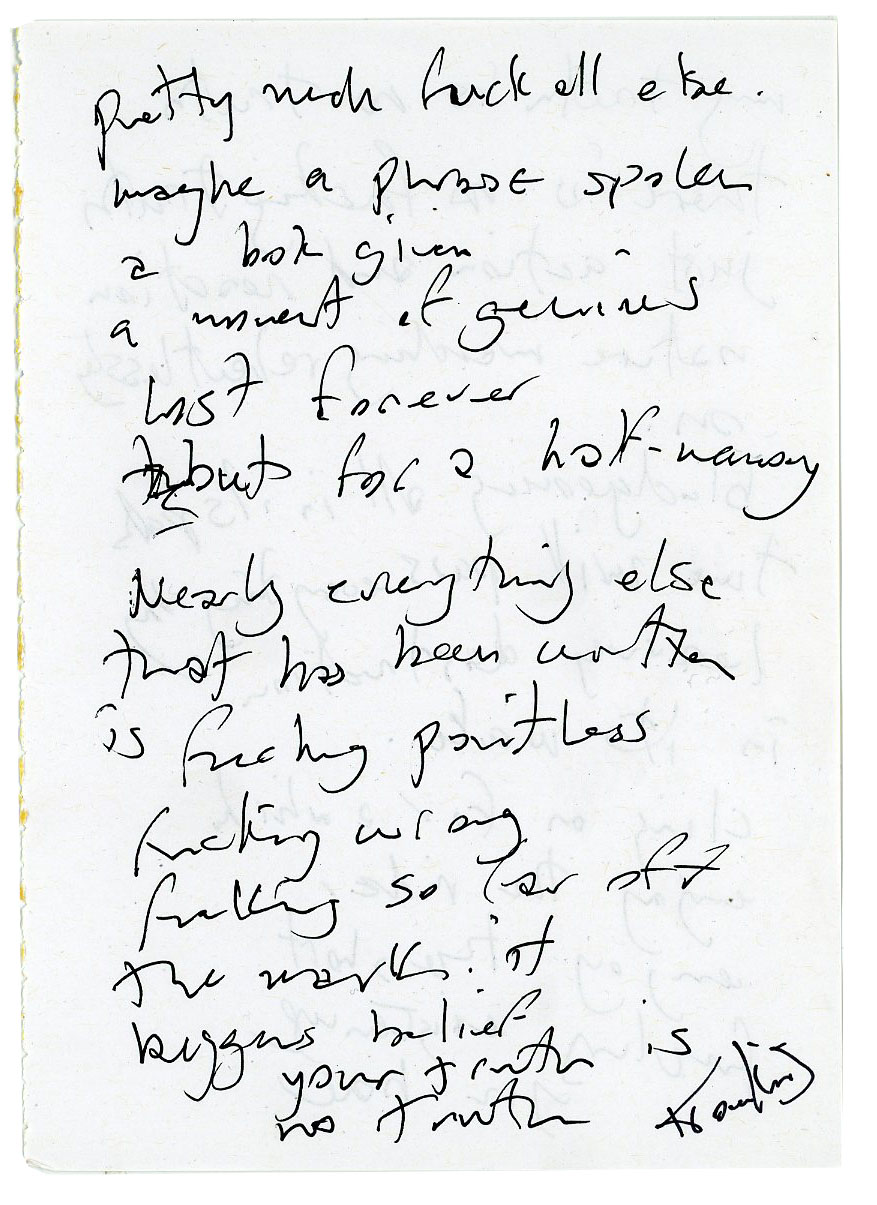 pretty much fuck all else.
maybe a phrase spoken
a book given
a moment of genius
lost forever
but for a half-memory
Nearly everything else
that has been written
is fucking pointless
fucking wrong
fucking so far off
the mark. it
beggars belief
your truth is
no truth